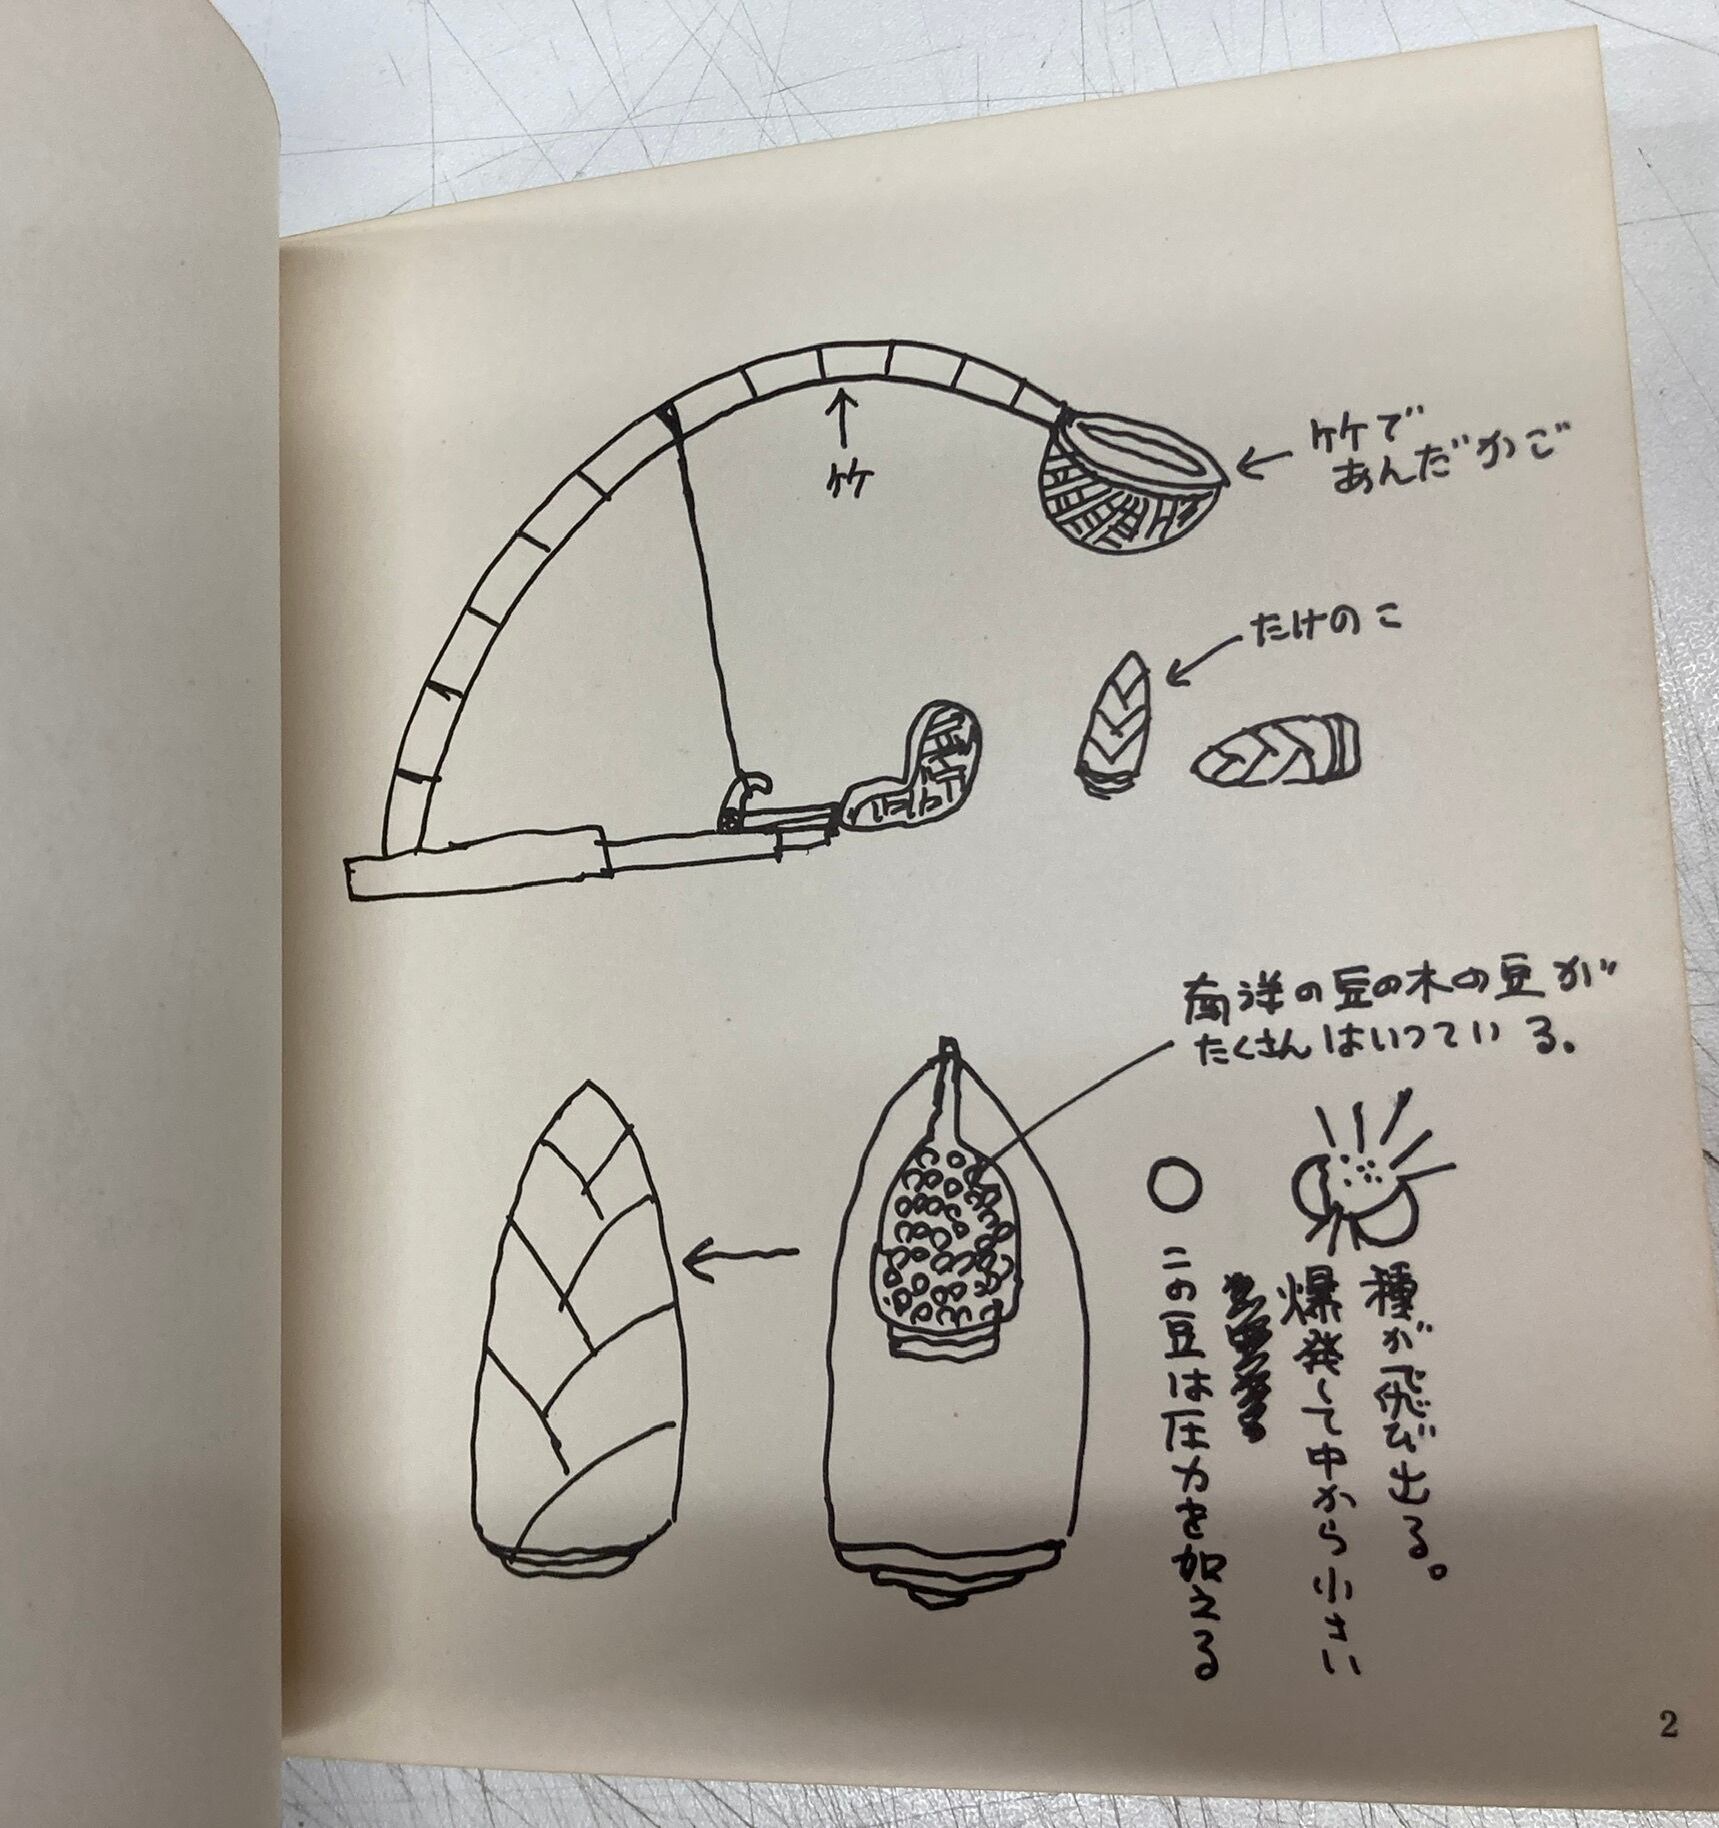 竹
竹で
あんだかご
たけのこ
南洋の豆の木の豆が
たくさんはいっている。
この豆は圧力を加える
爆発して中から小さい
種が飛び出る。
2